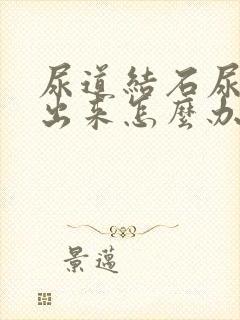 尿道結石尿
出来怎麼办
景邁